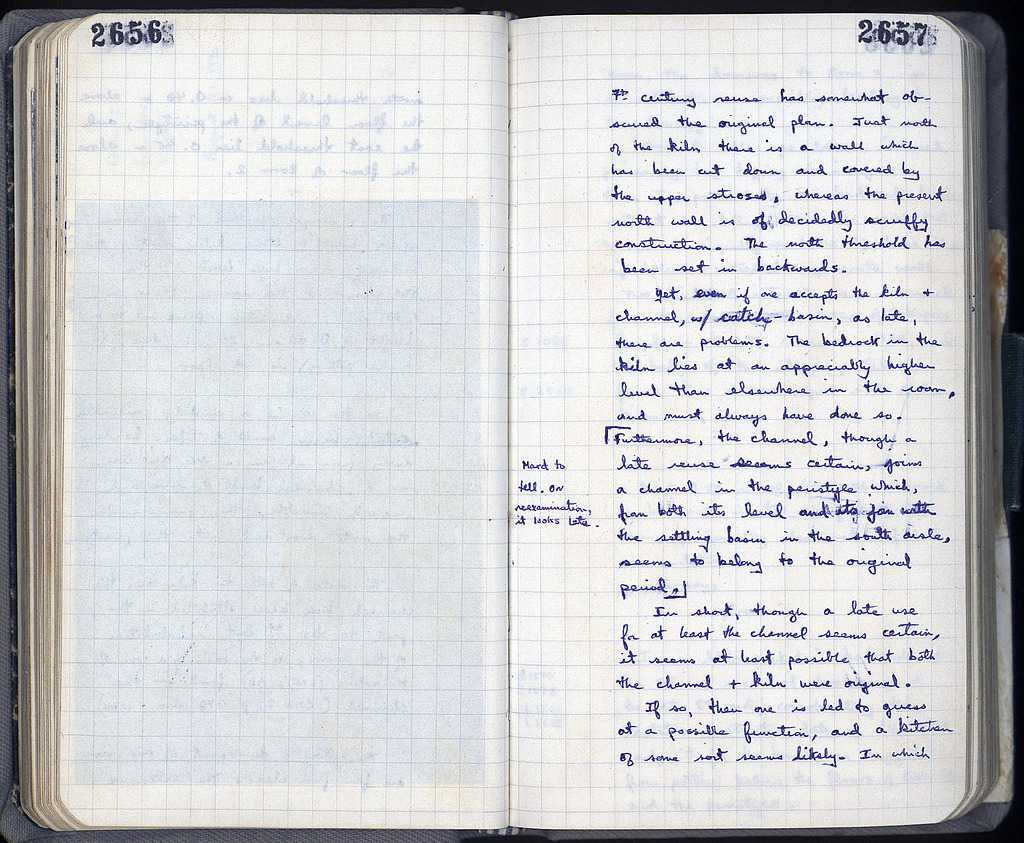 2656
2657
7th century reuse has somewhat ob-
scured the original plan. Just north
of the kiln there is a wall which
has been cut down and covered by
the upper stroses, whereas the present
north wall is of decidedly scruffy
construction. The north threshold has
been set in backwards.
Yet, even if one accepts the kiln +
channel, w/ catch-basin, as late,
there are problems. The bedrock in the
kiln lies at an appreciably higher
level than elsewhere in the room,
and must always have done so.
[Furthermore, the channel, though a
late reuse seems certain, joins
a channel in the peristyle which,
from both its level and its join with
the settling basin in the south aisle,
seems to belong to the original
period.]
Hard to
tell. On
reexamination,
it looks late.
In short, though a late use
for at least the channel seems certain,
it seems at least possible that both
the channel + kiln were original.
If so, then one is led to guess
at a possible function, and a kitchen
of some sort seems likely. In which